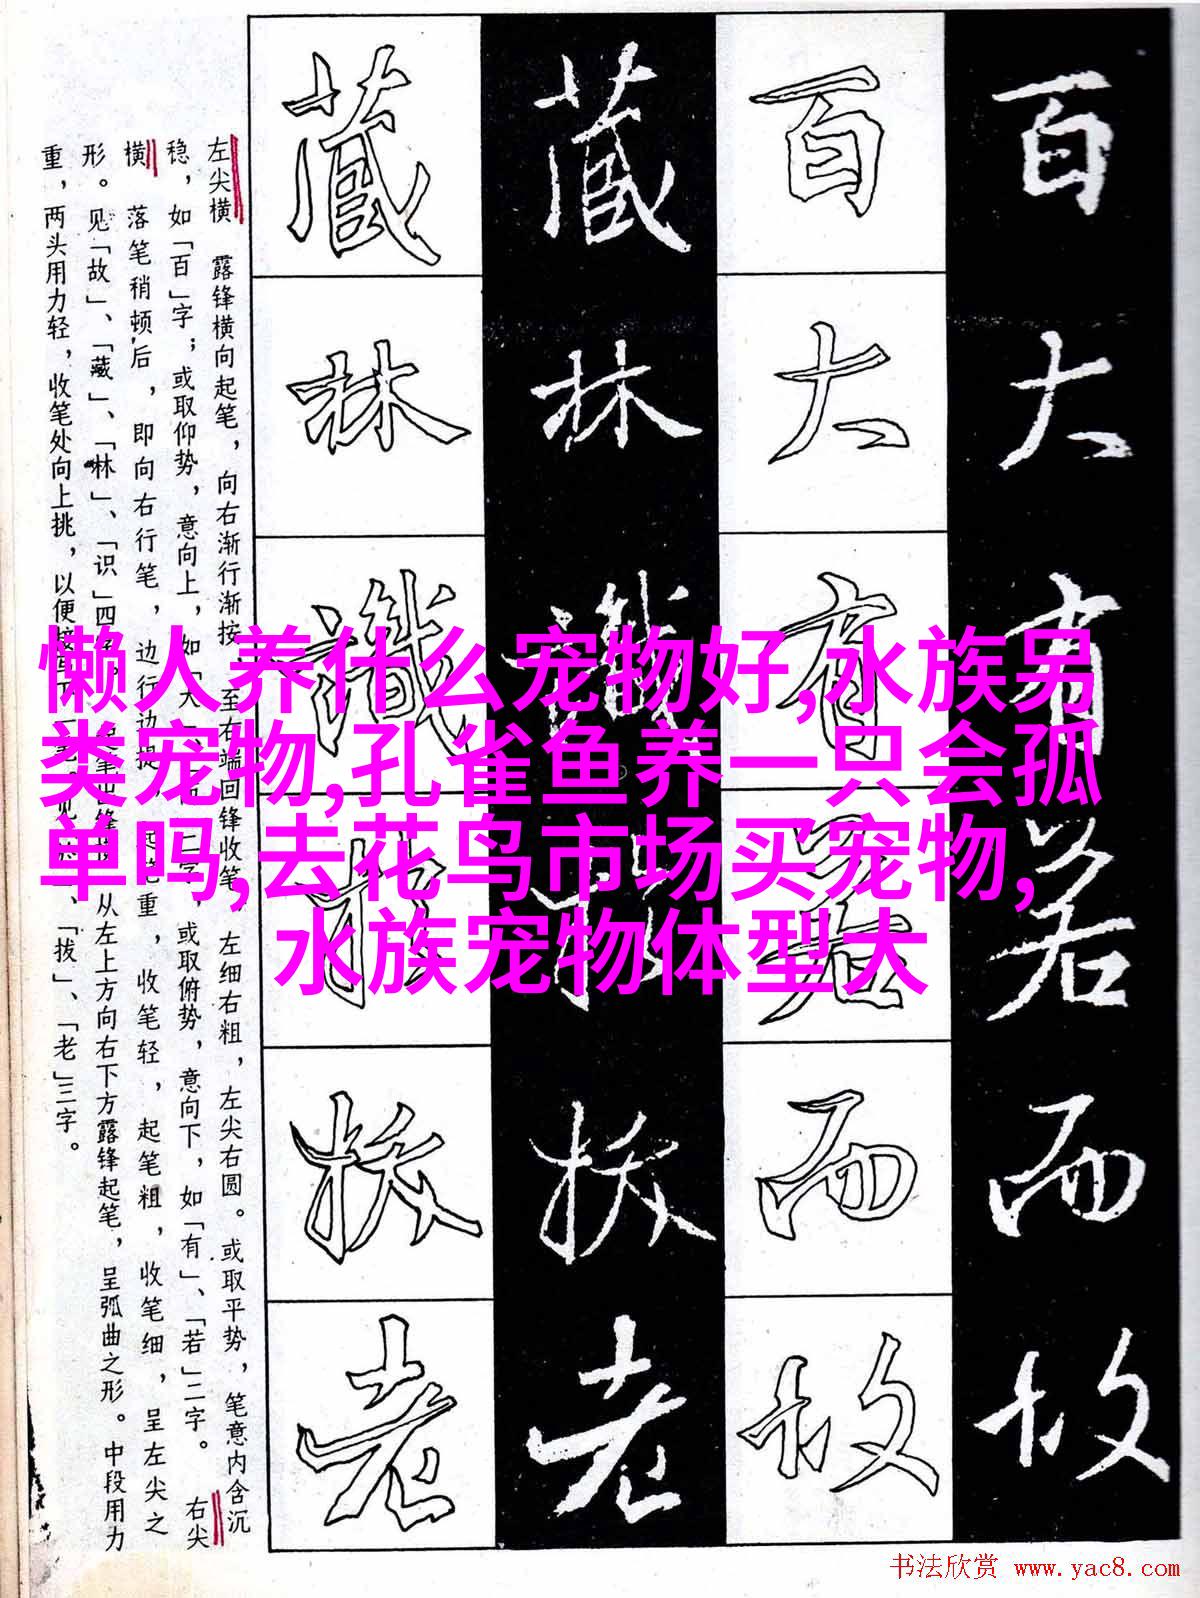 懒人养什么宠物好,水族另
类宠物,孔雀鱼养一只会孤
单吗,去花鸟市场买宠物,
水族宠物体型大
百
大
有
若
而
故
百
大
有
若
而
故
藏
林
識
拔
老
藏
林
識
拔
老
左尖横　露锋横向起笔，向右渐行渐按，至右端回锋收笔，左细右粗，左尖右圆。或取平势，笔意内含沉
稳，如「百」字；或取仰势，意向上，如「大」二字，或取俯势，意向下，如「有」、「若」二字。　右尖
横　落笔稍顿后，即向右行笔，边行边提，起笔重，收笔轻，起笔粗，收笔细，呈左尖之
形。见「故」、「藏」、「林」、「识」四字。从左上方向右下方露锋起笔，呈弧曲之形。中段用力
重，两头用力轻，收笔处向上挑，以便接写下一笔。见、「拔」、「老」三字。
书法欣赏 www.yac8.com